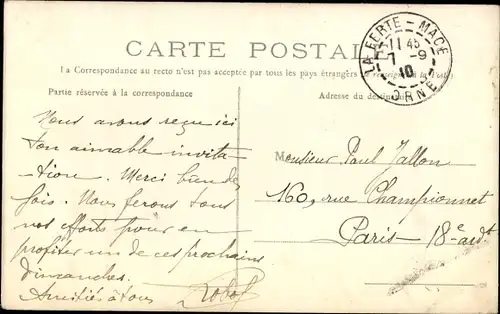 CARTE POSTALE
La Correspondance au recto n'est pas acceptée par tous les pays étrangers (Se renseigner à la Poste)
Partie réservée à la correspondance
Adresse du destinataire
LA FERTE-MACE
11 45
7-9
10
ORNE
Nous avons reçu ici
ton aimable invita-
tion. Merci
fois. Nous ferons tous
nos efforts pour en
profiter un de ces prochains
dimanches.
Amitiés à tous
Monsieur Paul Jallon
160, rue Championnet
Paris 18e ardt